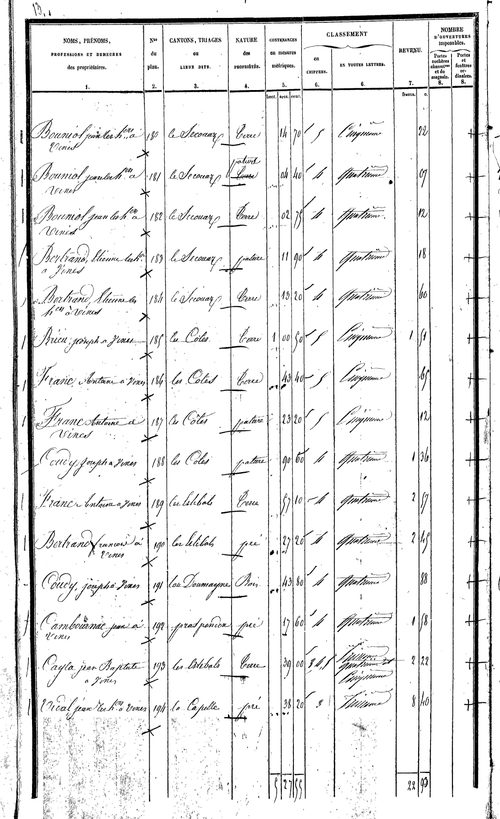 NOMS, PRÉNOMS, PROFESSIONS ET DEMEURES des propriétaires. 1.
Nos du plan. 2.
CANTONS, TRIAGES ou LIEUX DITS. 3.
NATURE des PROPRIÉTÉS. 4.
CONTENANCES en mesures métriques. 5.
CLASSEMENT
en CHIFFRES. 6.
EN TOUTES LETTRES. 6.
REVENU. 7.
NOMBRE D'OUVERTURES imposables.
Portes cochères et de magasin. 8.
Portes et fenêtres ordinaires. 8.
hect. ares. cent. francs. c.
Bouniol jean les hres à Vines 180 le Secouaz Terre 14 70 5 Cinquième 22
Bouniol jean les hres à Vines 181 le Secouaz pature 04 40 4 quatrième 07
Bouniol jean les hres à Vines 182 le Secouaz Terre 02 75 4 quatrième 12
Bertrand, Etienne les hres à Vines 183 le Secouaz pature 11 90 4 quatrième 18
Bertrand, Etienne les hres à Vines 184 le Secouaz Terre 13 20 4 quatrième 60
joseph à Vines 185 les Côtes Terre 1 00 50 5 Cinquième 1 51
Franc Antoine à Vines 186 les Côtes Terre 43 40 5 Cinquième 65
Franc Antoine à Vines 187 les Côtes pature 23 20 5 Cinquième 12
Coudy joseph à Vines 188 les Côtes pature 90 60 4 quatrième 1 36
Franc Antoine à Vines 189 Terre 57 10 4 quatrième 2 57
Bertrand francois à Vines 190 pré 27 20 4 quatrième 2 45
Coudy, joseph à Vines 191 lou Doumayne Bois 43 80 4 quatrième 88
jean à Vines 192 prat pendiou pré 17 60 4 quatrième 1 58
Cayla jean Baptiste à Vines 193 Terre 39 00 3 4, 5 troisième quatrième et Cinquième 2 22
Vidal jean les hres à Vines 194 la Capelle pré 38 20 3 troisième 8 40
5 27 55 22 93